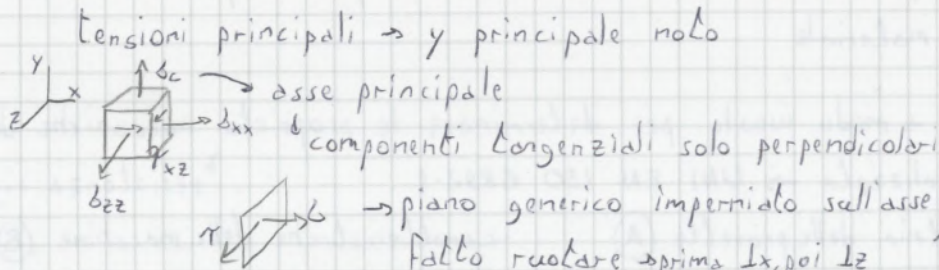 tensioni principali → y principale noto
y
x
z
σc → asse principale
σxx
componenti tangenziali solo perpendicolari
τxz
σzz
τ σ → piano generico imperniato sull'asse,
fatto ruotare → prima ⊥x, poi ⊥z